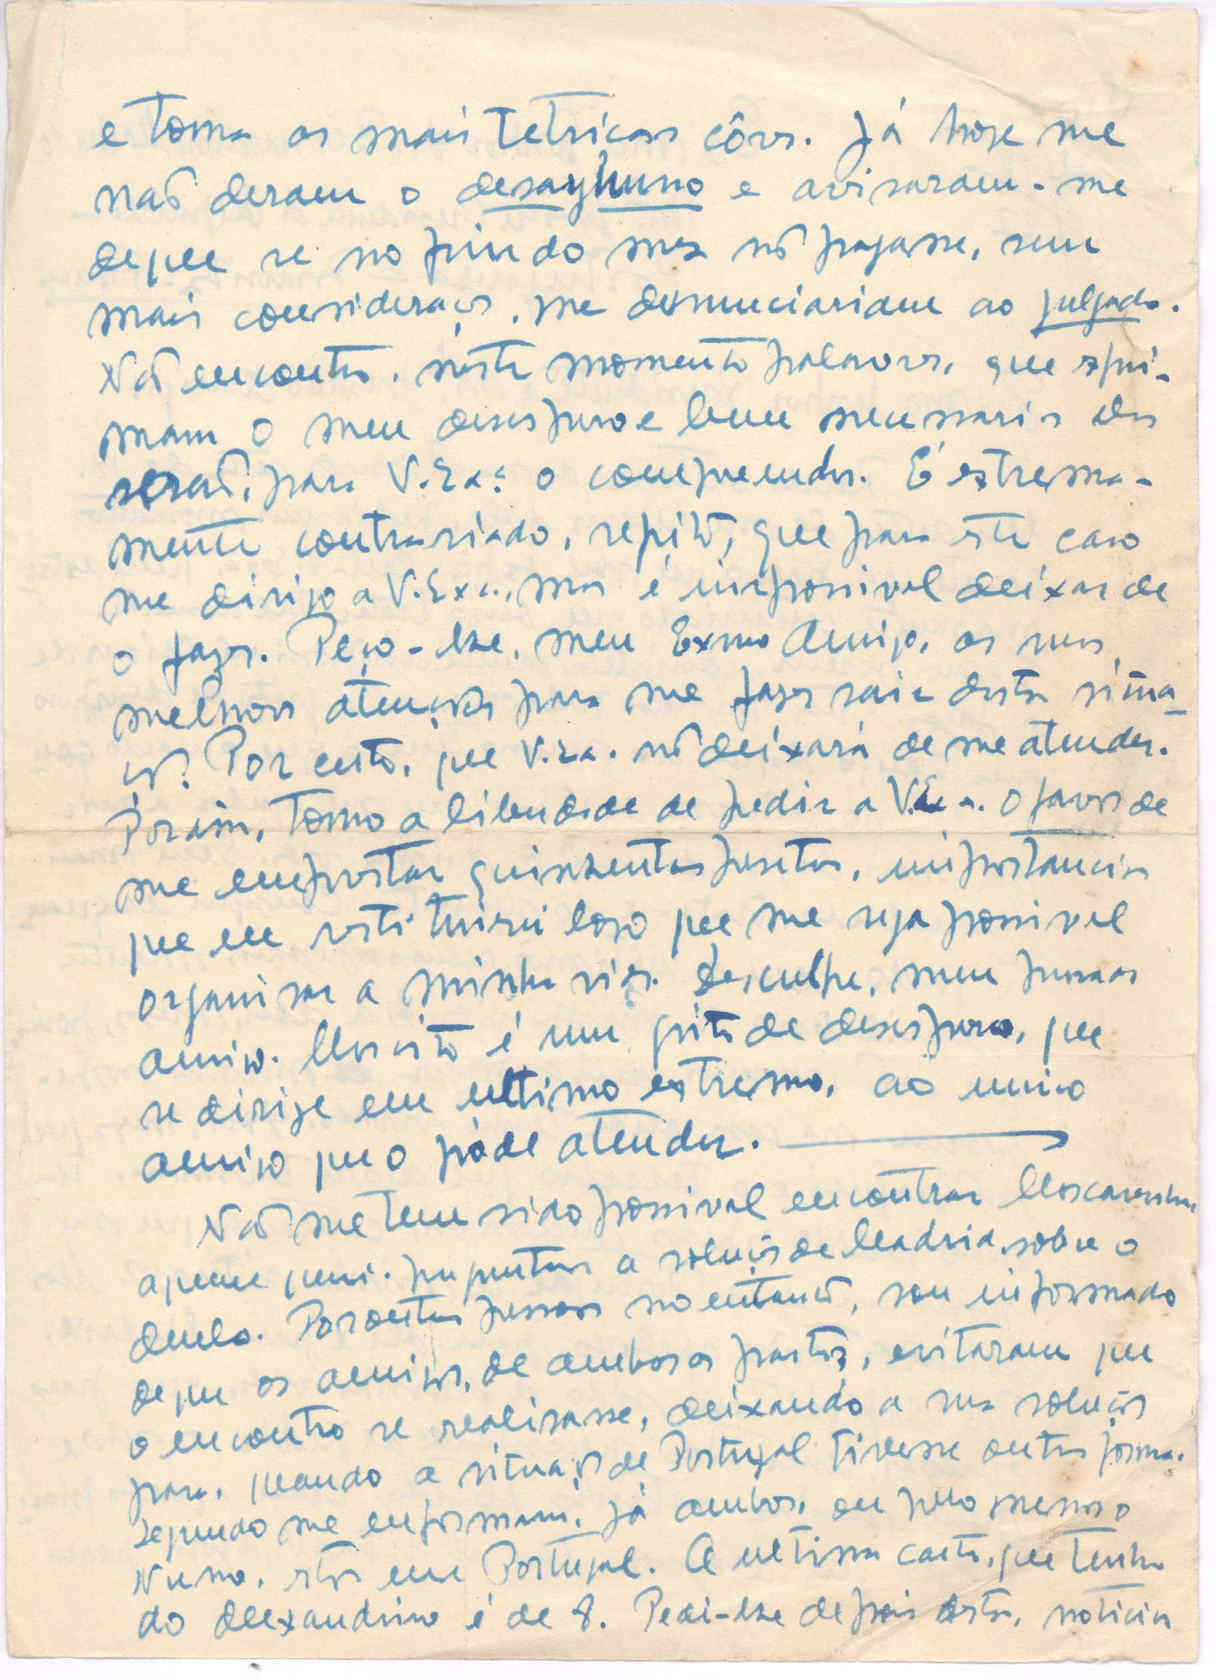 e toma as mais tetricas côres. Já hoje me
não deram o desayhuno e avisaram-me
de que se no fim do mez nõ pagasse, sem
mais consideraçõs, me denunciariam ao julgado.
Não encontro, neste momento palavras, que expri-
mam o meu desespero e bem necessarias elas
serão, para V.Exa. o comprender. É extrema-
mente contrariado, repito, que para este caso
me dirijo a V.Exa., mas é impossivel deixar de
o fazer. Peço-lhe, meu Exmo Amigo, as suas
melhores atençõs para me fazer sair desta situa-
çõ. Por certo, que V.Exa. nõ deixará de me atender.
Porisso, tomo a liberdade de pedir a V.Exa. o favor de
me emprestar quinhentas pesetas, importancia
que eu restituirei logo que me seja possivel
organisar a minha vida. Desculpe, meu presado
amigo. Mas isto é um grito de desespero, que
se dirige em ultimo extremo, ao unico
amigo que o póde atender.
Não me tem sido possivel encontrar Mascarenhas
a quem queria perguntar a soluçõ de Madrid, sobre o
duelo. Por outras pessoas no entanto, sou informado
de que os amigos, de ambas as partes, evitaram que
o encontro se realisasse, deixando a sua soluçõ
para, quando a situaçõ de Portugal tivesse outra forma.
Segundo me enformam, já ambos, ou pelo menos o
Nuno, estão em Portugal. A ultima carta, que tenho
do Alexandrino é de 8. Pedi-lhe depois desta, noticias